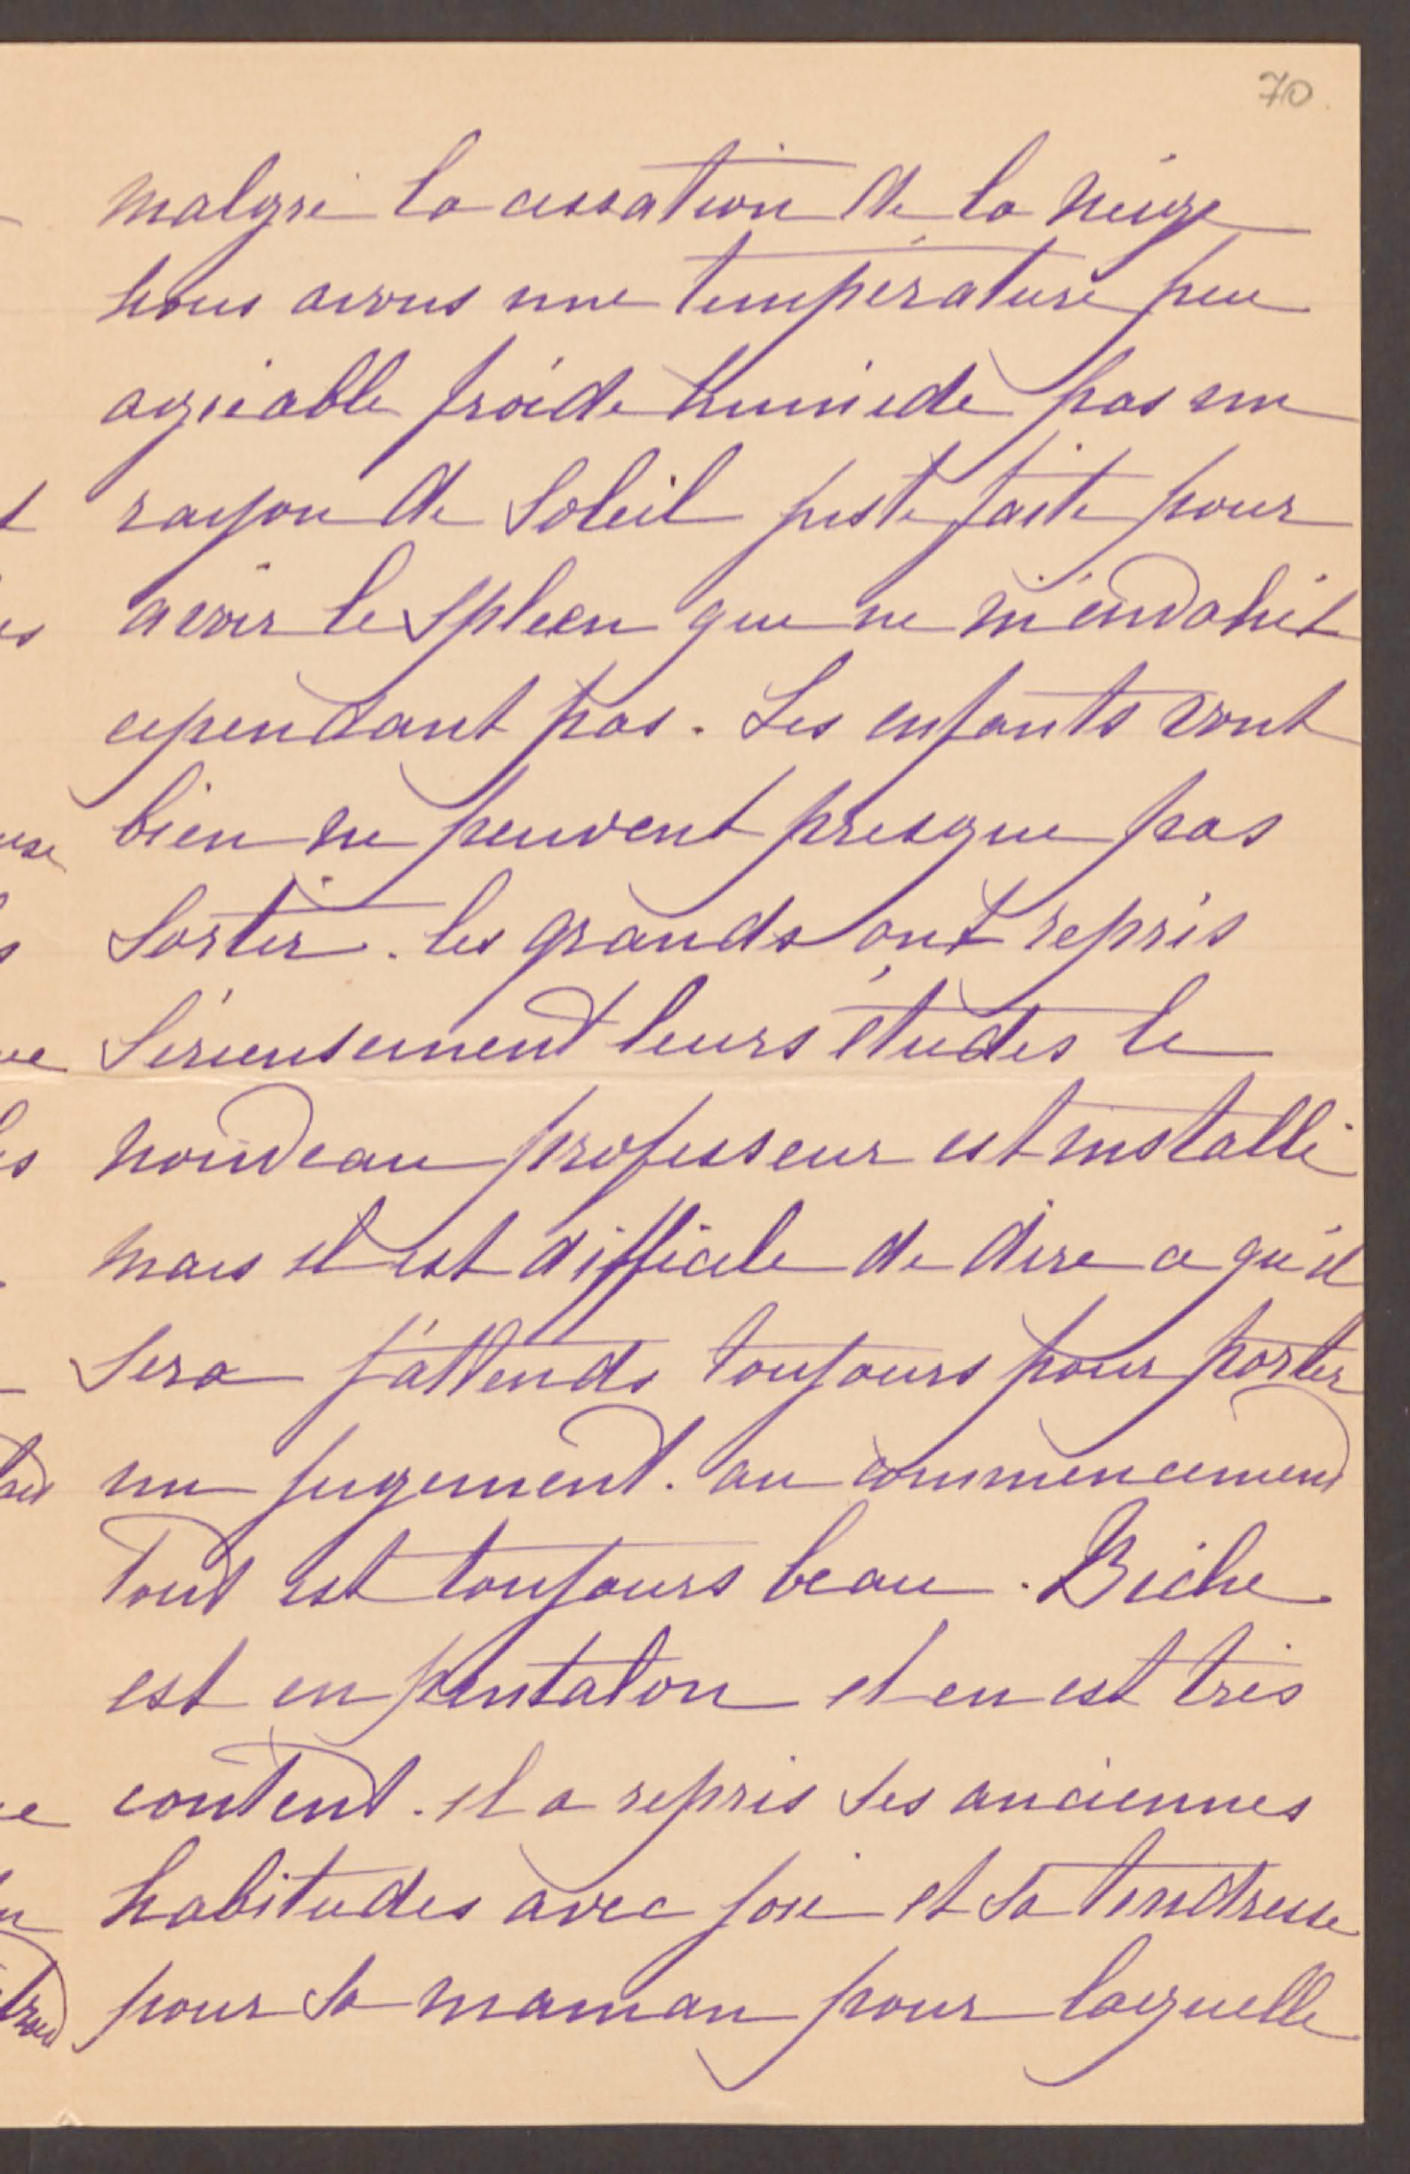 70
malgré la cessation de la neige
nous avons une température peu
agréable froide humide pas un
rayon de Soleil juste faite pour
avoir le Spleen que ne m'envahit
cependant pas. Les enfants vont
bien ne peuvent presque pas
Sortir. les grands ont repris
Sérieusement leurs études le
nouveau professeur est installé
mais il est difficile de dire ce qu'il
Sera j'attends toujours pour porter
un jugement. au commencement
Tout est toujours beau. Biche
est en pantalon et en est très
content. il a repris ses anciennes
habitudes avec joie et sa tendresse
pour sa maman pour laquelle